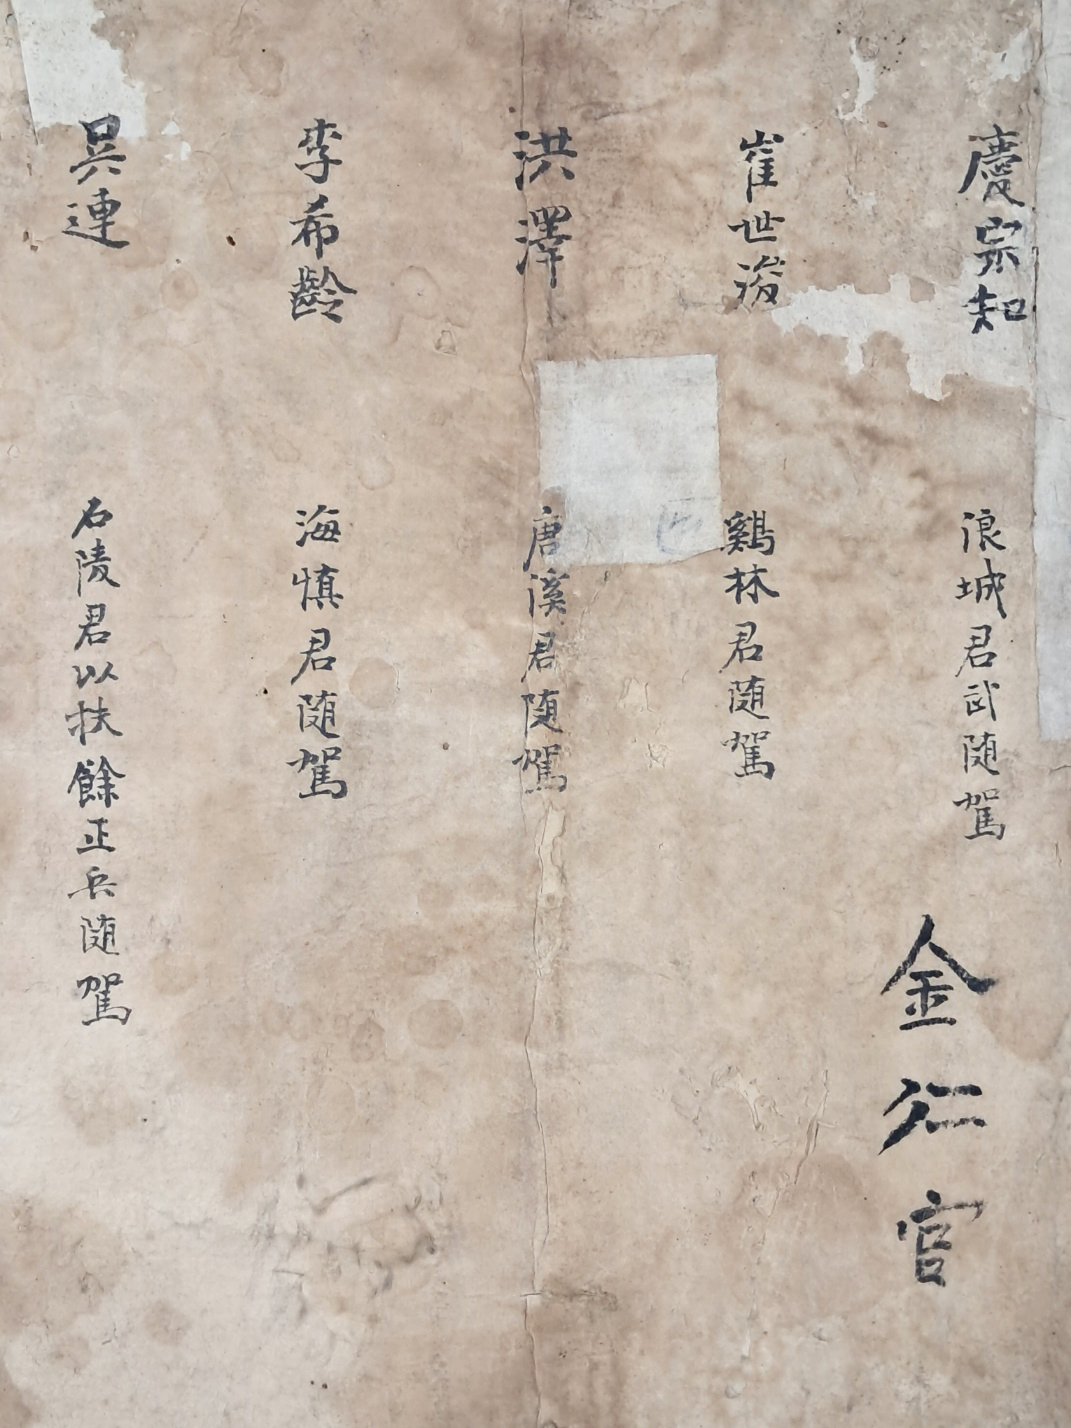 慶宗知
浪城君武随駕
金仁官
崔世浚
鷄林君随駕
洪澤
唐溪君随駕
李希齡
海慎君随駕
吳連
石陵君以扶餘正兵随駕